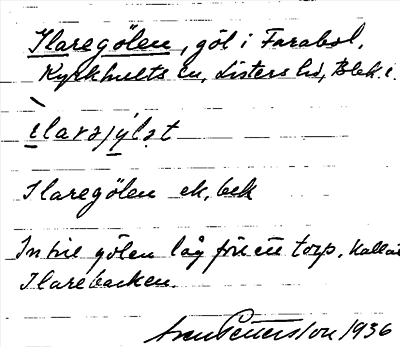 Ilaregölen, göl i Farabol,
Kyrkhults sn, Listers hd, Blek. l.
ìlarajy̱lət
Ilaregölen ek. bek
Intill gölen låg förr ett torp, kallat
Ilarebacken.
Sven Pettersson 1936